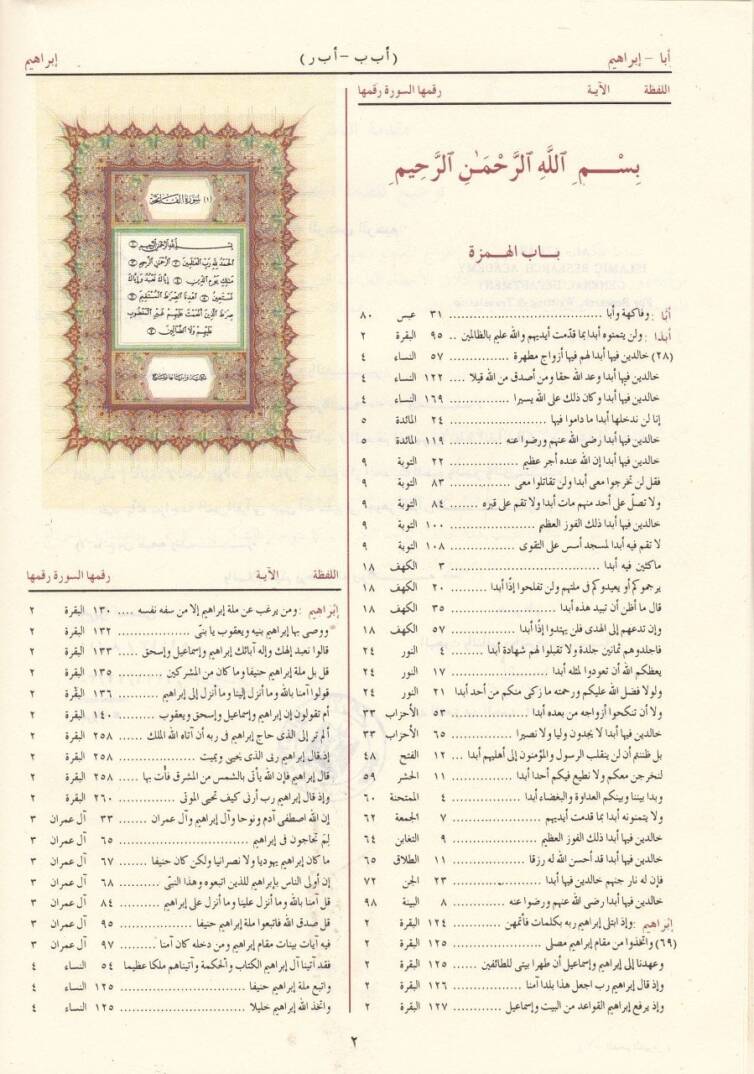 أبا – إبراهيم
(أب ب – أب ر)
إبراهيم
اللفظة الآية رقمها السورة رقمها
بِسْمِ اللَّهِ الرَّحْمَٰنِ الرَّحِيمِ
باب الهمزة
أبًّا : وفاكهة وأبا .......... ٣١ عبس ٨٠
أبدًا : ولن يتمنوه أبدا بما قدّمت أيديهم والله عليم بالظالمين .. ٩٥ البقرة ٢
(٢٨) خالدين فيها أبدا لهم فيها أزواج مطهرة .......... ٥٧ النساء ٤
خالدين فيها أبدا وعد الله حقا ومن أصدق من الله قيلا .... ١٢٢ النساء ٤
خالدين فيها أبدا وكان ذلك على الله يسيرا .......... ١٦٩ النساء ٤
إنا لن ندخلها أبدا ما داموا فيها .......... ٢٤ المائدة ٥
خالدين فيها أبدا رضى الله عنهم ورضوا عنه .......... ١١٩ المائدة ٥
خالدين فيها أبدا إن الله عنده أجر عظيم .......... ٢٢ التوبة ٩
فقل لن تخرجوا معى أبدا ولن تقاتلوا معى .......... ٨٣ التوبة ٩
ولا تصلّ على أحد منهم مات أبدا ولا تقم على قبره ........ ٨٤ التوبة ٩
خالدين فيها أبدا ذلك الفوز العظيم .......... ١٠٠ التوبة ٩
لا تقم فيه أبدا لمسجد أسس على التقوى .......... ١٠٨ التوبة ٩
ماكثين فيه أبدا .......... ٣ الكهف ١٨
يرجموكم أو يعيدوكم فى ملتهم ولن تفلحوا إذًا أبدا ........ ٢٠ الكهف ١٨
قال ما أظن أن تبيد هذه أبدا .......... ٣٥ الكهف ١٨
وإن تدعهم إلى الهدى فلن يهتدوا إذًا أبدا .......... ٥٧ الكهف ١٨
فاجلدوهم ثمانين جلدة ولا تقبلوا لهم شهادة أبدا ........ ٤ النور ٢٤
يعظكم الله أن تعودوا لمثله أبدا .......... ١٧ النور ٢٤
ولولا فضل الله عليكم ورحمته ما زكى منكم من أحد أبدا ٢١ النور ٢٤
ولا أن تنكحوا أزواجه من بعده أبدا .......... ٥٣ الأحزاب ٣٣
خالدين فيها أبدا لا يجدون وليا ولا نصيرا .......... ٦٥ الأحزاب ٣٣
بل ظننتم أن لن ينقلب الرسول والمؤمنون إلى أهليهم أبدا ... ١٢ الفتح ٤٨
لنخرجن معكم ولا نطيع فيكم أحدا أبدا .......... ١١ الحشر ٥٩
وبدا بيننا وبينكم العداوة والبغضاء أبدا .......... ٤ الممتحنة ٦٠
ولا يتمنونه أبدا بما قدمت أيديهم .......... ٧ الجمعة ٦٢
خالدين فيها أبدا ذلك الفوز العظيم .......... ٩ التغابن ٦٤
خالدين فيها أبدا قد أحسن الله له رزقا .......... ١١ الطلاق ٦٥
فإن له نار جهنم خالدين فيها أبدا .......... ٢٣ الجن ٧٢
خالدين فيها أبدا رضى الله عنهم ورضوا عنه .......... ٨ البينة ٩٨
إبْراهيم : وإذ ابتلى إبراهيم ربه بكلمات فأتمهن .......... ١٢٤ البقرة ٢
(٦٩) واتخذوا من مقام إبراهيم مصلى .......... ١٢٥ البقرة ٢
وعهدنا إلى إبراهيم وإسماعيل أن طهرا بيتى للطائفين ........ ١٢٥ البقرة ٢
وإذ قال إبراهيم رب اجعل هذا بلدا آمنا .......... ١٢٦ البقرة ٢
وإذ يرفع إبراهيم القواعد من البيت وإسماعيل .......... ١٢٧ البقرة ٢
(١) سورة الفاتحة
بسم الله الرحمن الرحيم ١
الحمد لله رب العالمين ٢ الرحمن الرحيم ٣
مالك يوم الدين ٤ إياك نعبد وإياك
نستعين ٥ اهدنا الصراط المستقيم ٦
صراط الذين أنعمت عليهم غير المغضوب
عليهم ولا الضالين ٧
اللفظة الآية رقمها السورة رقمها
إبْراهيم : ومن يرغب عن ملة إبراهيم إلا من سفه نفسه .... ١٣٠ البقرة ٢
* ووصى بها إبراهيم بنيه ويعقوب يا بنىّ .......... ١٣٢ البقرة ٢
قالوا نعبد إلهك وإله آبائك إبراهيم وإسماعيل وإسحق ..... ١٣٣ البقرة ٢
قل بل ملة إبراهيم حنيفا وما كان من المشركين .......... ١٣٥ البقرة ٢
قولوا آمنا بالله وما أنزل إلينا وما أنزل إلى إبراهيم ........ ١٣٦ البقرة ٢
أم تقولون إن إبراهيم وإسماعيل وإسحق ويعقوب ........ ١٤٠ البقرة ٢
ألم تر إلى الذى حاج إبراهيم فى ربه أن آتاه الله الملك ..... ٢٥٨ البقرة ٢
إذ قال إبراهيم ربى الذى يحيى ويميت .......... ٢٥٨ البقرة ٢
قال إبراهيم فإن الله يأتى بالشمس من المشرق فأت بها .... ٢٥٨ البقرة ٢
وإذ قال إبراهيم رب أرنى كيف تحيى الموتى .......... ٢٦٠ البقرة ٢
إن الله اصطفى آدم ونوحا وآل إبراهيم وآل عمران ........ ٣٣ آل عمران ٣
لِمَ تحاجون فى إبراهيم .......... ٦٥ آل عمران ٣
ما كان إبراهيم يهوديا ولا نصرانيا ولكن كان حنيفا ....... ٦٧ آل عمران ٣
إن أولى الناس بإبراهيم للذين اتبعوه وهذا النبىّ ........ ٦٨ آل عمران ٣
قل آمنا بالله وما أنزل علينا وما أنزل على إبراهيم ........ ٨٤ آل عمران ٣
قل صدق الله فاتبعوا ملة إبراهيم حنيفا .......... ٩٥ آل عمران ٣
فيه آيات بينات مقام إبراهيم ومن دخله كان آمنا ........ ٩٧ آل عمران ٣
فقد آتينا آل إبراهيم الكتاب والحكمة وآتيناهم ملكا عظيما ٥٤ النساء ٤
واتبع ملة إبراهيم حنيفا .......... ١٢٥ النساء ٤
واتخذ الله إبراهيم خليلا .......... ١٢٥ النساء ٤
٢